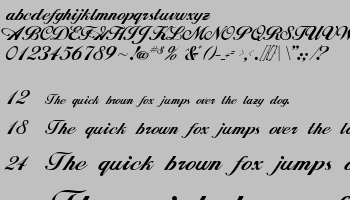 abcdefghijklmnopqrstuvwxyz
ABCDEFGHIJKLMNOPQRSTUVW
0123456789~!@#$% & ()-_+= >;‹:[{}]| \"':; /?
12 The quick brown fox jumps over the lazy dog.
18 The quick brown fox jumps over the
24 The quick brown fox jumps